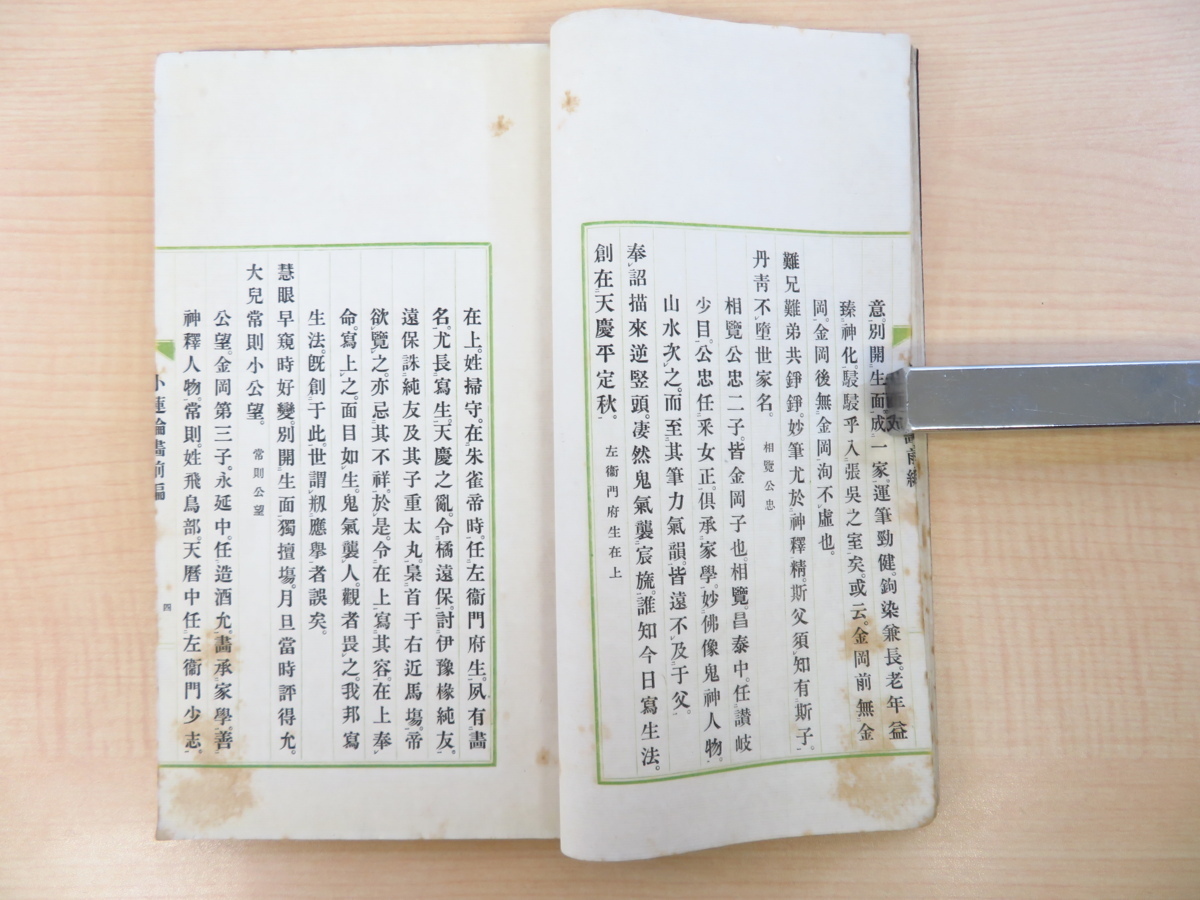 意。別開生面。成一家。運筆勁健。鉤染兼長。老年益
臻神化。駸駸乎入張吳之室矣。或云。金岡前無金
岡。金岡後無金岡。洵不虛也。
難兄難弟共錚錚。妙筆尤於神釋精。斯父須知有斯子。
丹靑不墮世家名。 相覽公忠
相覽公忠二子。皆金岡子也。相覽。昌泰中。任讃岐
少目。公忠任采女正。俱承家學。妙佛像鬼神人物。
山水次之。而至其筆力氣韻。皆遠不及于父。
奉詔描來逆竪頭。凄然鬼氣襲宸旒。誰知今日寫生法。
創在天慶平定秋。 左衞門府生在上
在上。姓掃守。在朱雀帝時。任左衞門府生。夙有畵
名。尤長寫生。天慶之亂。令橘遠保。討伊豫椽純友。
遠保誅純友及其子重太丸。梟首于右近馬塲。帝
欲覽之。亦忌其不祥。於是。令在上寫其容。在上奉
命。寫上之。面目如生。鬼氣襲人。觀者畏之。我邦寫
生法。旣創于此。世謂剏應擧者誤矣。
慧眼早窺時好變。別開生面獨擅塲。月旦當時評得允。
大兒常則小公望。 常則公望
公望。金岡第三子。永延中。任造酒允。畵承家學。善
神釋人物。常則。姓飛鳥部。天曆中任左衞門少志。
小蓮論畵前編 四